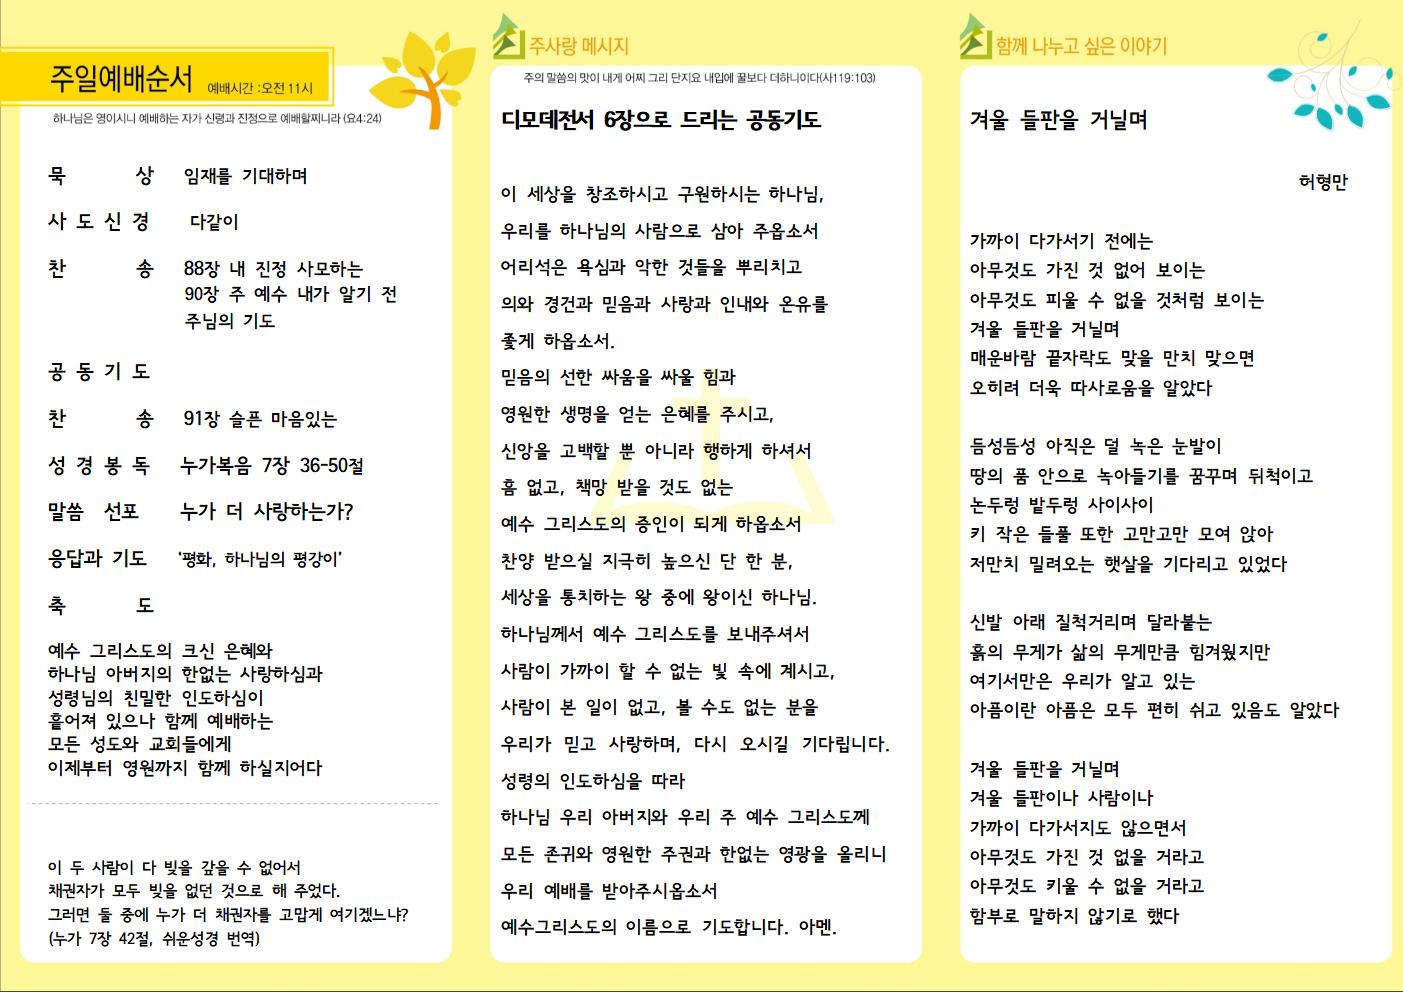 주일예배순서 예배시간 :오전 11시
하나님은 영이시니 예배하는 자가 신령과 진정으로 예배할찌니라 (요4:24)
묵 상 임재를 기대하며
사 도 신 경 다같이
찬 송 88장 내 진정 사모하는
90장 주 예수 내가 알기 전
주님의 기도
공 동 기 도
찬 송 91장 슬픈 마음있는
성 경 봉 독 누가복음 7장 36-50절
말씀 선포 누가 더 사랑하는가?
응답과 기도 '평화, 하나님의 평강이'
축 도
예수 그리스도의 크신 은혜와
하나님 아버지의 한없는 사랑하심과
성령님의 친밀한 인도하심이
흩어져 있으나 함께 예배하는
모든 성도와 교회들에게
이제부터 영원까지 함께 하실지어다
이 두 사람이 다 빚을 갚을 수 없어서
채권자가 모두 빚을 없던 것으로 해 주었다.
그러면 둘 중에 누가 더 채권자를 고맙게 여기겠느냐?
(누가 7장 42절, 쉬운성경 번역)
주사랑 메시지
주의 말씀의 맛이 내게 어찌 그리 단지요 내입에 꿀보다 더하니이다(시119:103)
디모데전서 6장으로 드리는 공동기도
이 세상을 창조하시고 구원하시는 하나님,
우리를 하나님의 사람으로 삼아 주옵소서
어리석은 욕심과 악한 것들을 뿌리치고
의와 경건과 믿음과 사랑과 인내와 온유를
좇게 하옵소서.
믿음의 선한 싸움을 싸울 힘과
영원한 생명을 얻는 은혜를 주시고,
신앙을 고백할 뿐 아니라 행하게 하셔서
흠 없고, 책망 받을 것도 없는
예수 그리스도의 증인이 되게 하옵소서
찬양 받으실 지극히 높으신 단 한 분,
세상을 통치하는 왕 중에 왕이신 하나님.
하나님께서 예수 그리스도를 보내주셔서
사람이 가까이 할 수 없는 빛 속에 계시고,
사람이 본 일이 없고, 볼 수도 없는 분을
우리가 믿고 사랑하며, 다시 오시길 기다립니다.
성령의 인도하심을 따라
하나님 우리 아버지와 우리 주 예수 그리스도께
모든 존귀와 영원한 주권과 한없는 영광을 올리니
우리 예배를 받아주시옵소서
예수그리스도의 이름으로 기도합니다. 아멘.
함께 나누고 싶은 이야기
겨울 들판을 거닐며
허형만
가까이 다가서기 전에는
아무것도 가진 것 없어 보이는
아무것도 피울 수 없을 것처럼 보이는
겨울 들판을 거닐며
매운바람 끝자락도 맞을 만치 맞으면
오히려 더욱 따사로움을 알았다
듬성듬성 아직은 덜 녹은 눈발이
땅의 품 안으로 녹아들기를 꿈꾸며 뒤척이고
논두렁 밭두렁 사이사이
키 작은 들풀 또한 고만고만 모여 앉아
저만치 밀려오는 햇살을 기다리고 있었다
신발 아래 질척거리며 달라붙는
흙의 무게가 삶의 무게만큼 힘겨웠지만
여기서만은 우리가 알고 있는
아픔이란 아픔은 모두 편히 쉬고 있음도 알았다
겨울 들판을 거닐며
겨울 들판이나 사람이나
가까이 다가서지도 않으면서
아무것도 가진 것 없을 거라고
아무것도 키울 수 없을 거라고
함부로 말하지 않기로 했다